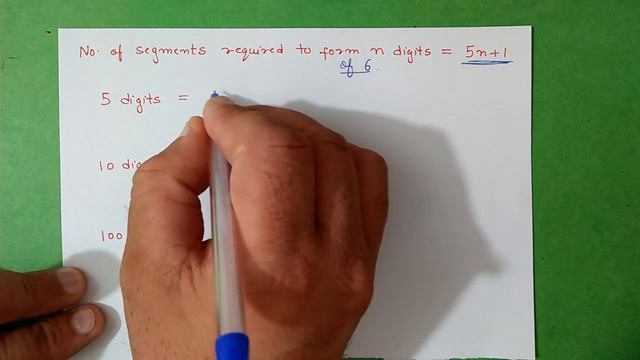 No. of segments required to form n digits = 5n+1
of 6.
5 digits =
10
100